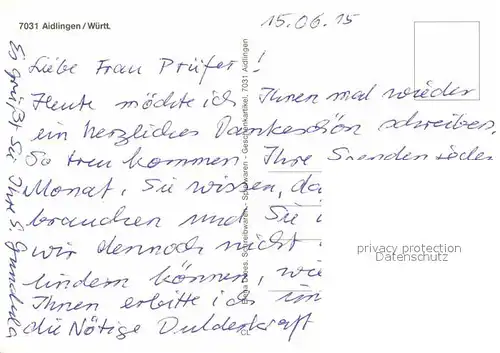 7031 Aidlingen/Württ.
15.06.15
Liebe Frau Prüfer!
Heute möchte ich Ihnen mal wieder
ein herzliches Dankeschön schreiben.
So treu kommen Ihre Spenden jeden
Monat. Sie wissen, da
brauchen und Sie
wir dennoch nicht
lindern können, wie
Ihnen erbitte ich
die Nötige Duldekraft
Es grüßt Sie Ihre S.
Schreibwaren - Spielwaren - Geschenkartikel, 7031 Aidlingen
privacy protection
Datenschutz